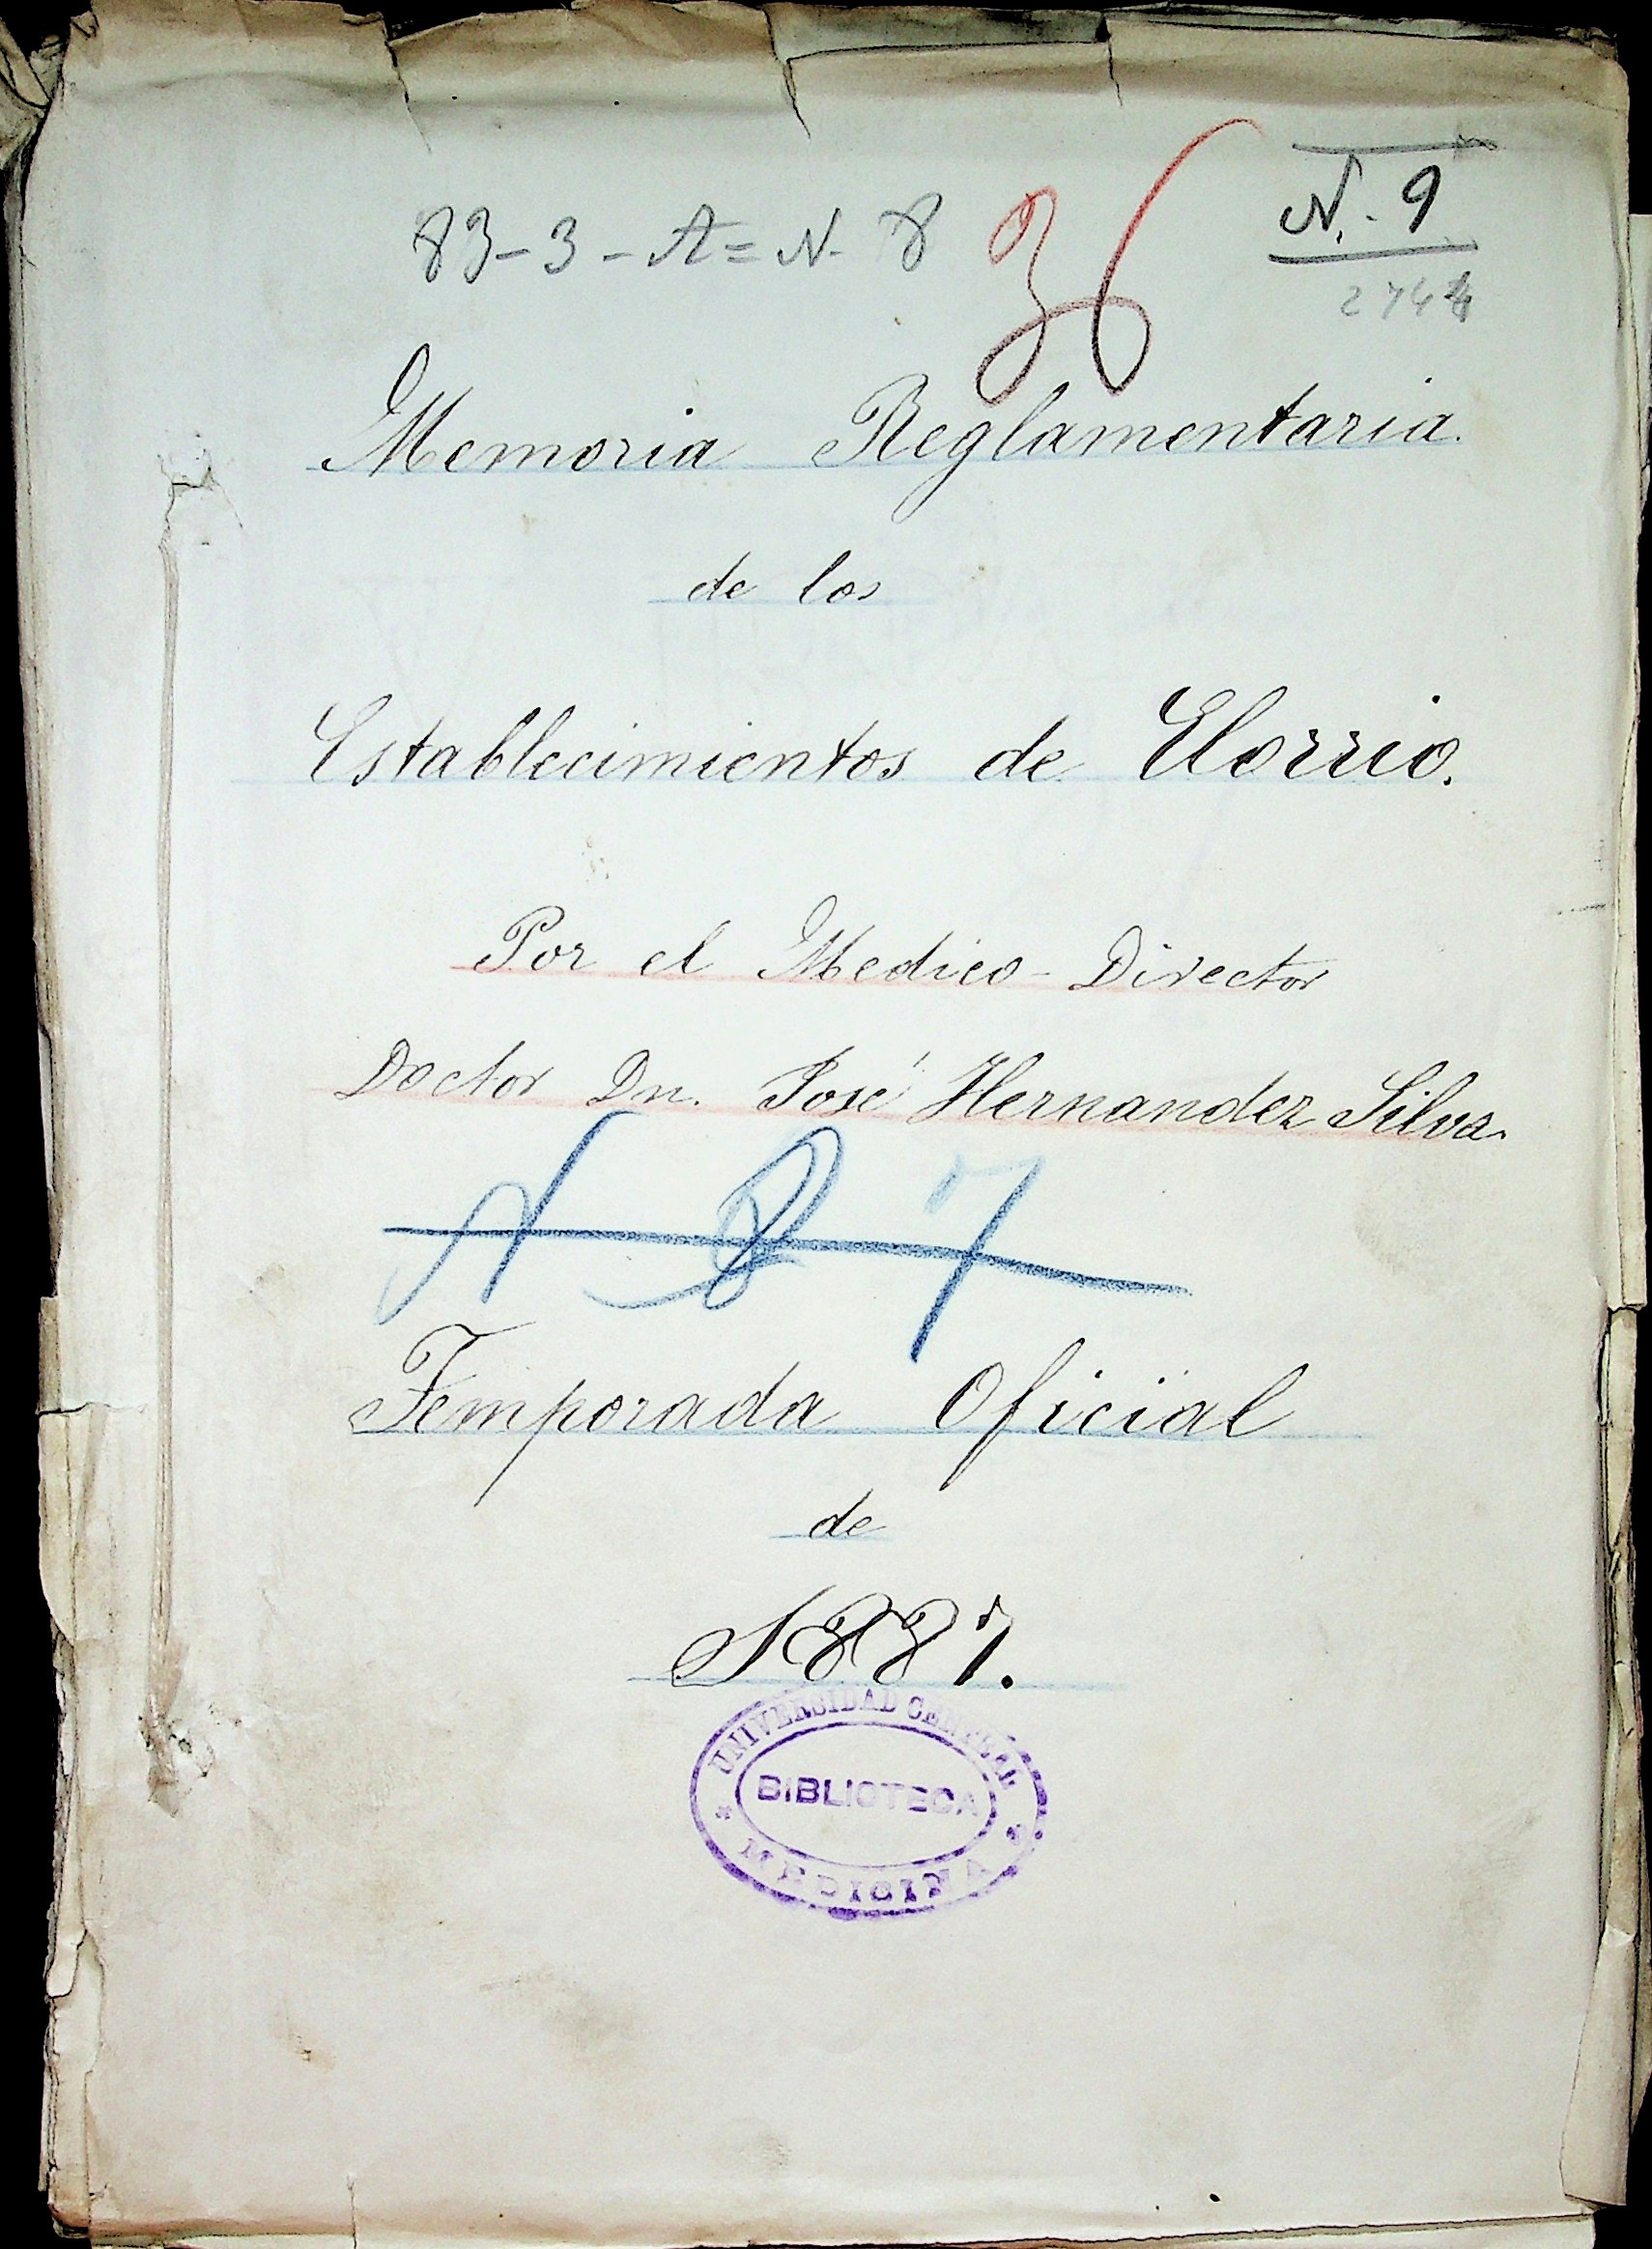 83-3-A=N-8
36
N. 9
2744
Memoria Reglamentaria.
de los
Establecimientos de Elorrio.
Por el Medico-Director
Doctor Dn. José Hernandez Silva.
N 7
Temporada Oficial
de
1887.
UNIVERSIDAD CENTRAL
BIBLIOTECA
MEDICINA